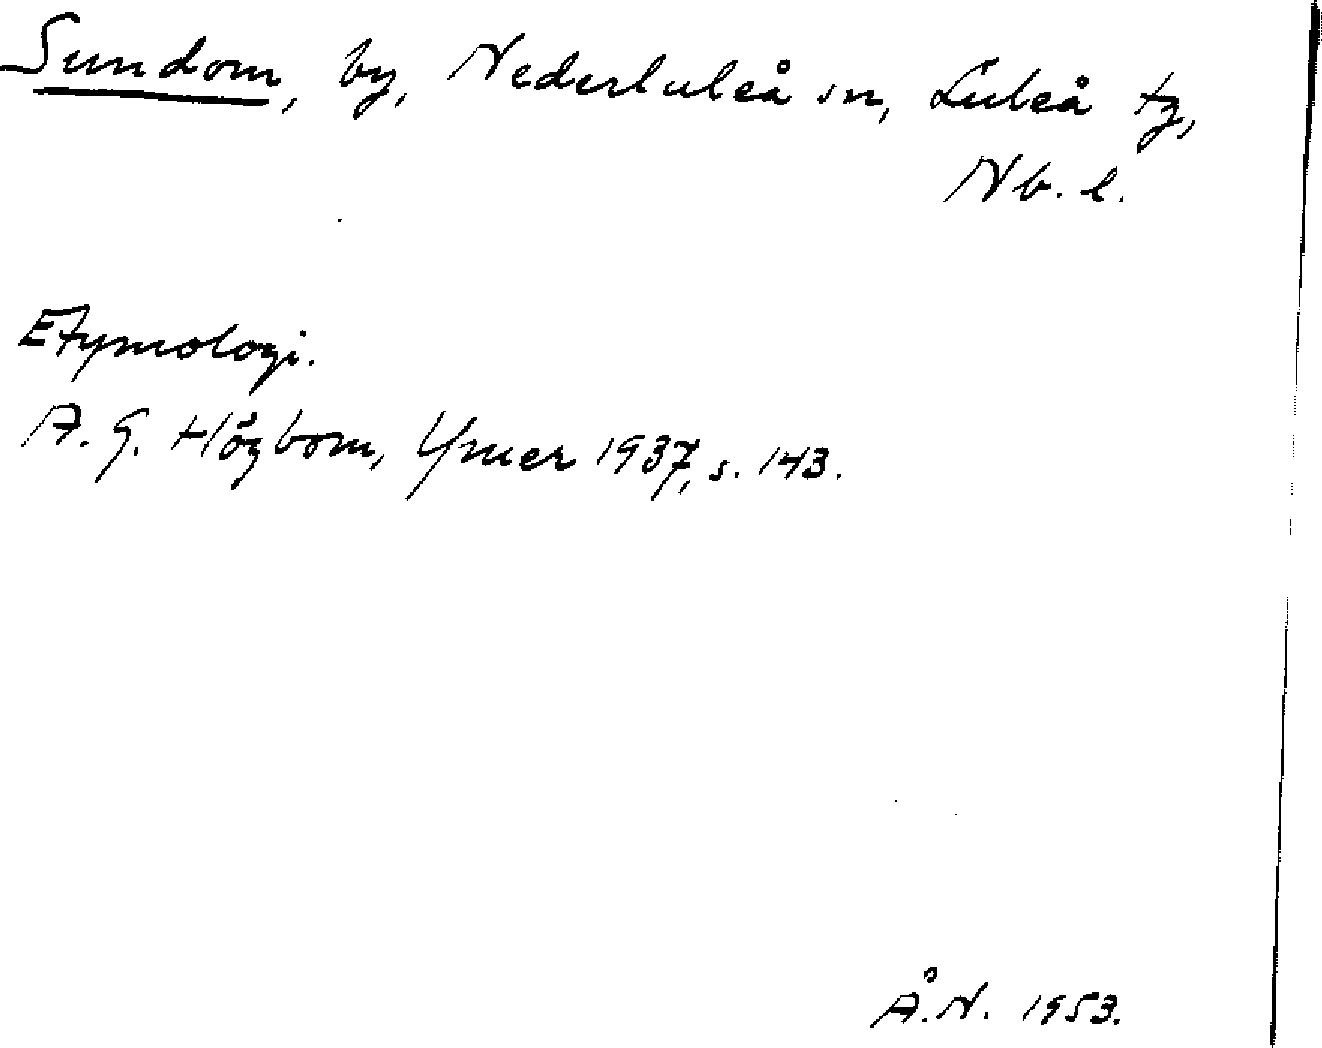 Sundom, by, Nederluleå sn, Luleå tg,
Nb. l.
Etymologi.
A. G. Högbom, Ymer 1937, s. 143.
Å. N. 1953.